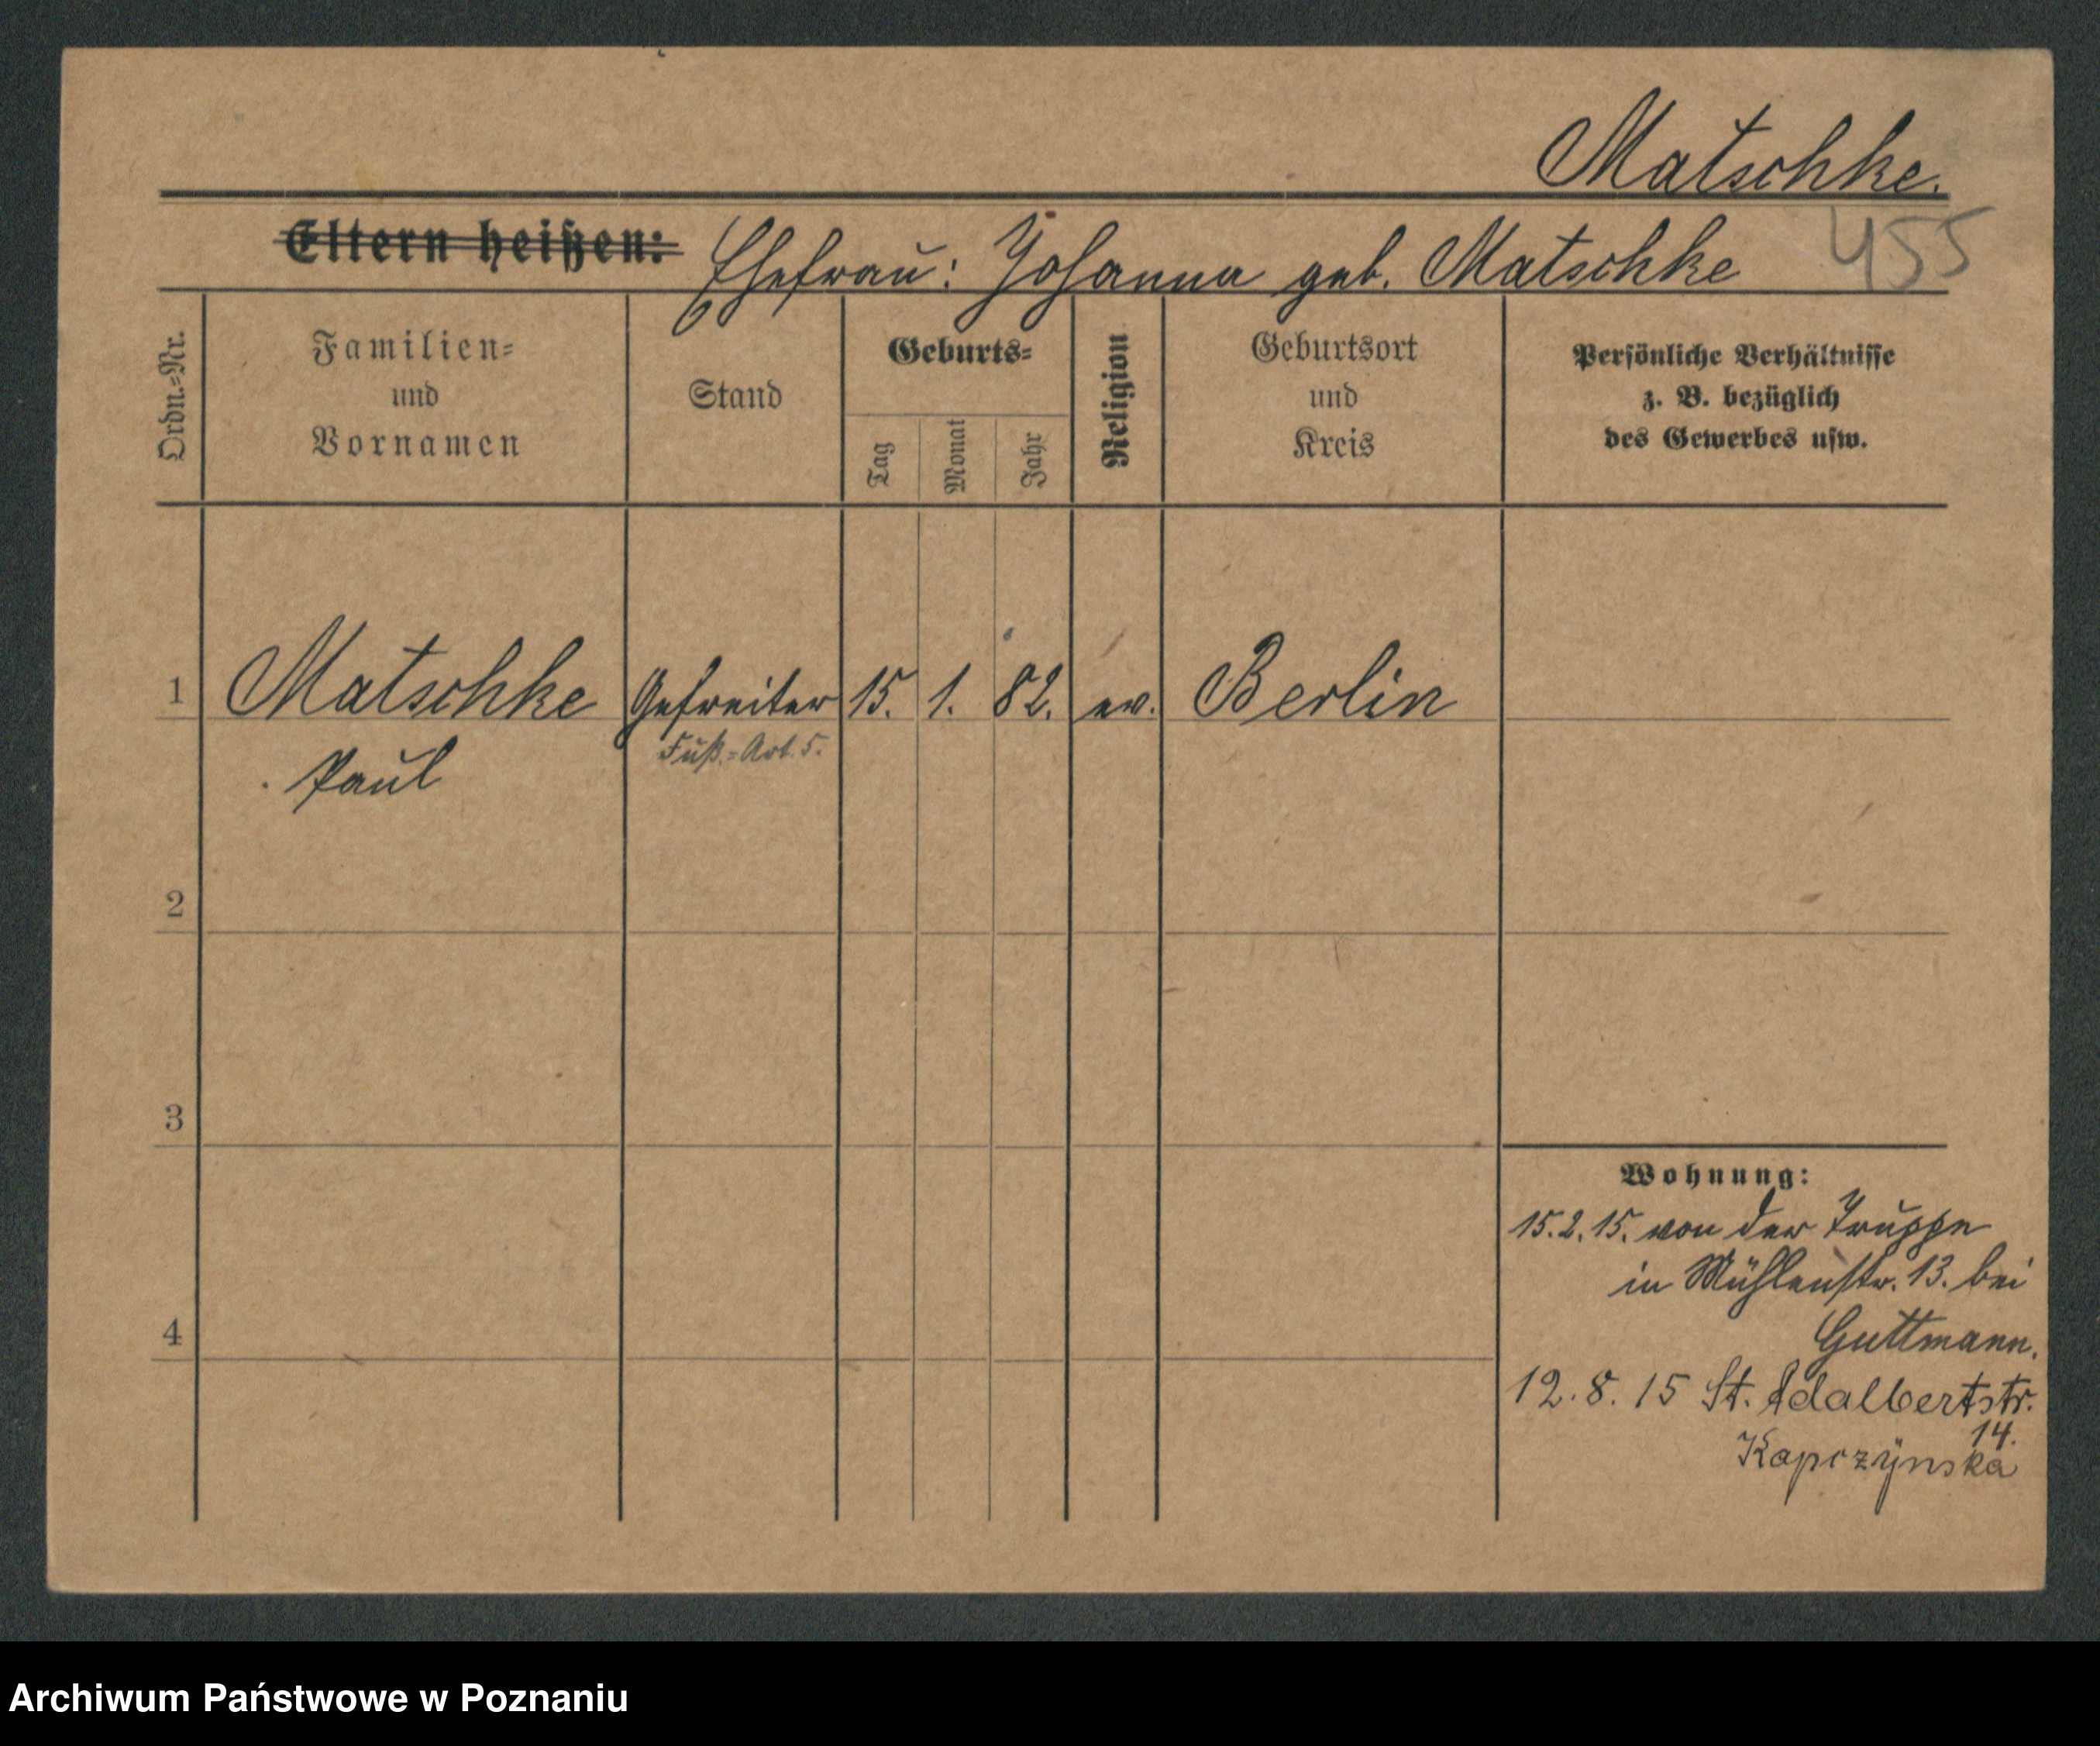 Matschke.
Eltern heißen: Ehefrau: Johanna geb. Matschke 455
Ordn.=Nr.
Familien=
und
Vornamen
Stand
Geburts=
Tag
Monat
Jahr
Religion
Geburtsort
und
Kreis
Persönliche Verhältnisse
z. B. bezüglich
des Gewerbes usw.
1 Matschke Gefreiter 15. 1. 82. ev. Berlin
Fuß.=Art. 5.
Paul
2
3
4
Wohnung:
15.2.15. von der Truppe
in Mühlenstr. 13. bei
Guttmann.
12.8.15 St. Adalbertstr.
14.
Kapczÿnska
Archiwum Państwowe w Poznaniu